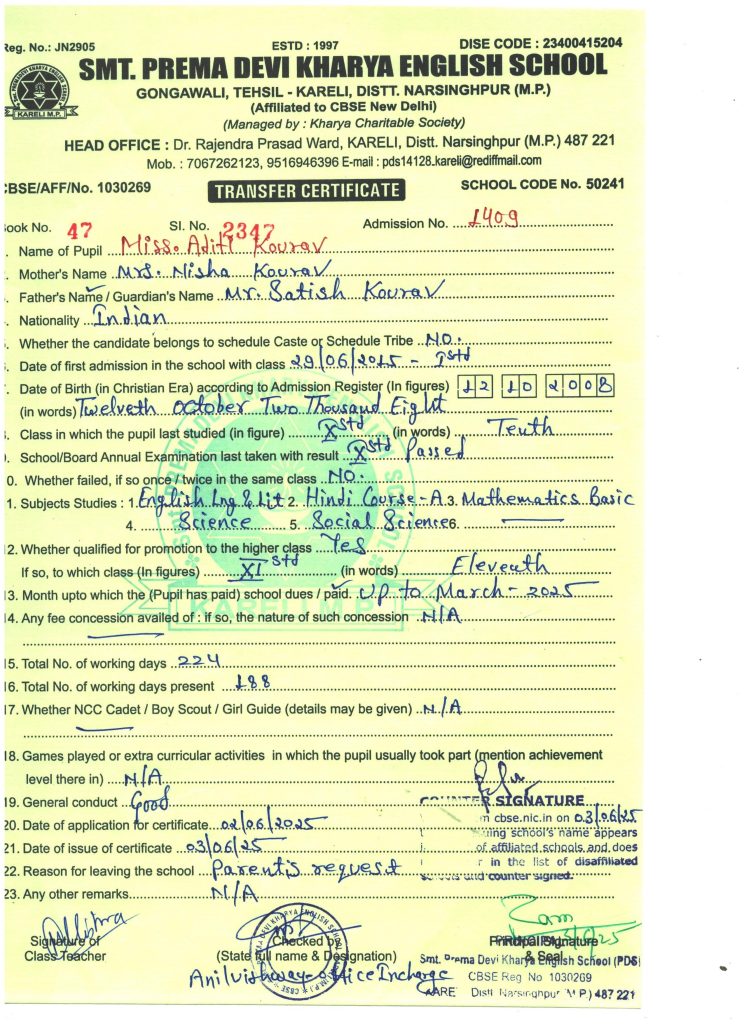 Reg. No.: JN2905 ESTD : 1997 DISE CODE : 23400415204
SMT. PREMA DEVI KHARYA ENGLISH SCHOOL
KARELI M.P.
GONGAWALI, TEHSIL - KARELI, DISTT. NARSINGHPUR (M.P.)
(Affiliated to CBSE New Delhi)
(Managed by : Kharya Charitable Society)
HEAD OFFICE : Dr. Rajendra Prasad Ward, KARELI, Distt. Narsinghpur (M.P.) 487 221
Mob. : 7067262123, 9516946396 E-mail : pds14128.kareli@rediffmail.com
CBSE/AFF/No. 1030269 TRANSFER CERTIFICATE SCHOOL CODE No. 50241
Book No. 47 Sl. No. 2347 Admission No. 1409
. Name of Pupil Miss. Aditi Kourav
. Mother's Name Mrs. Nisha Kourav
. Father's Name / Guardian's Name Mr. Satish Kourav
. Nationality Indian
. Whether the candidate belongs to schedule Caste or Schedule Tribe NO.
. Date of first admission in the school with class 29/06/2015 - Istd
. Date of Birth (in Christian Era) according to Admission Register (In figures) 12 10 2008
(in words) Twelveth October Two Thousand Eight
. Class in which the pupil last studied (in figure) Xstd (in words) Tenth
. School/Board Annual Examination last taken with result Xstd Passed
0. Whether failed, if so once / twice in the same class NO.
1. Subjects Studies : 1. English Lng & Lit 2. Hindi Course-A 3. Mathematics Basic
4. Science 5. Social Science 6.
12. Whether qualified for promotion to the higher class Yes
If so, to which class (In figures) XI std (in words) Eleventh
13. Month upto which the (Pupil has paid) school dues / paid. Up to March-2025
14. Any fee concession availed of : if so, the nature of such concession N/A
15. Total No. of working days 224
16. Total No. of working days present 188
17. Whether NCC Cadet / Boy Scout / Girl Guide (details may be given) N/A
18. Games played or extra curricular activities in which the pupil usually took part (mention achievement
level there in) N/A
19. General conduct Good
COUNTER SIGNATURE
20. Date of application for certificate 02/06/2025
cbse.nic.in on 03/06/25
21. Date of issue of certificate 03/06/25
school's name appears
of affiliated schools and does
22. Reason for leaving the school Parent's request
in the list of disaffiliated
and counter signed.
23. Any other remarks N/A
Signature of Class Teacher
Checked by
(State full name & Designation)
Anil vishway-office Incharge
Principal Signature
& Seal
Smt. Prema Devi Kharya English School (PDS)
CBSE Reg No 1030269
KARELI M.P.
Distt. Narsinghpur (M.P.) 487 221